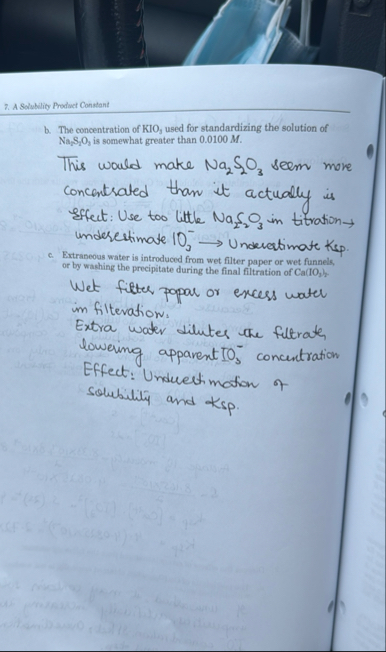 7. A Solubility Product Constant
b. The concentration of KIO3 used for standardizing the solution of
Na2S2O3 is somewhat greater than 0.0100 M.
This would make Na2S2O3 seem more
concentrated than it actually is
Effect: Use too little Na2S2O3 in titration→
underestimate IO3⁻ → Underestimate Ksp.
c. Extraneous water is introduced from wet filter paper or wet funnels,
or by washing the precipitate during the final filtration of Ca(IO3)2.
Wet filter papar or excess water
in filteration.
Extra water dilutes the filtrate,
lowering apparent IO3⁻ concentration
Effect: Underestimation of
solubility and Ksp.